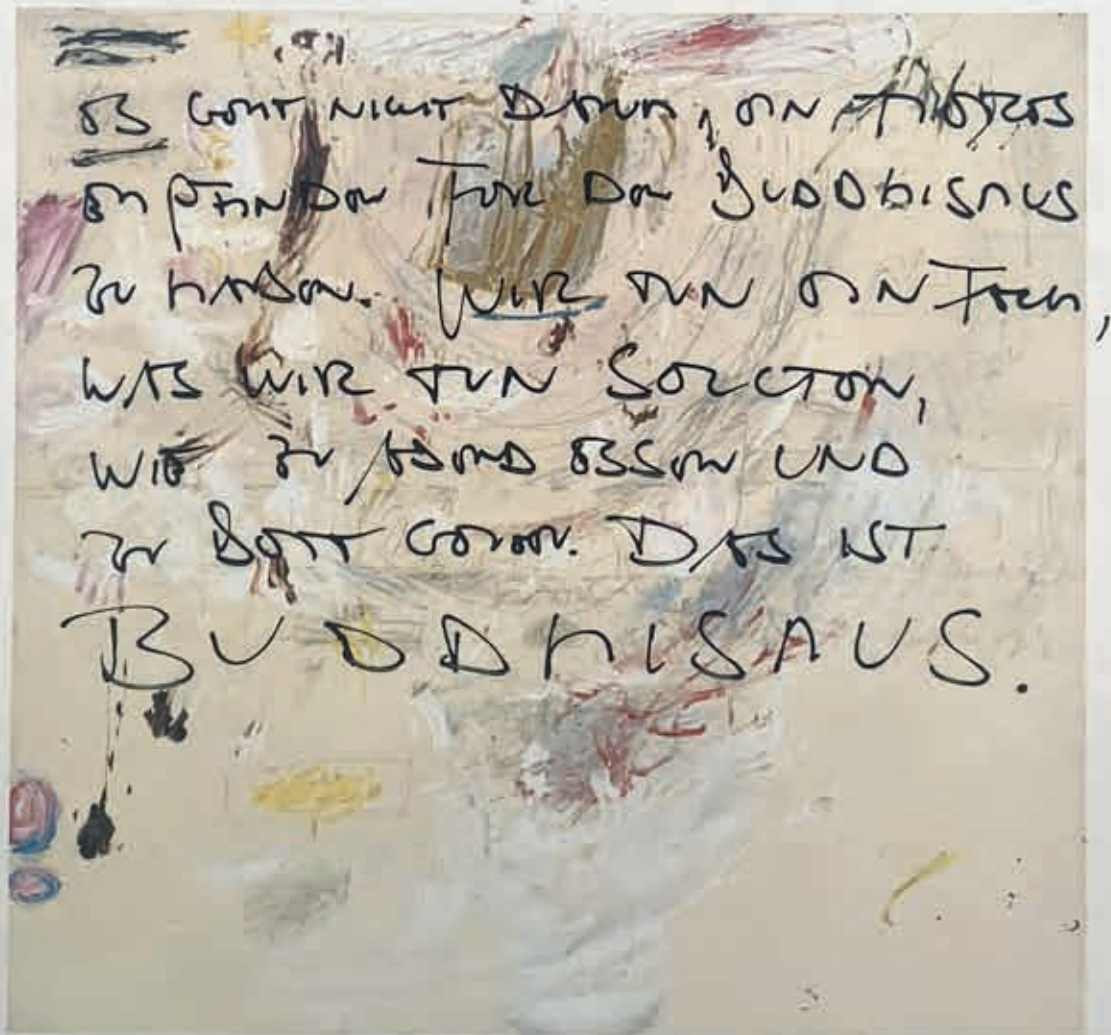 ES GEHT NICHT DARUM, EIN TIEFES
EMPFINDEN FÜR DEN BUDDHISMUS
ZU HABEN. WIR TUN EINFACH,
WAS WIR TUN SOLLTEN,
WIE ZU ABEND ESSEN UND
ZU BETT GEHEN. DAS IST
BUDDHISMUS.